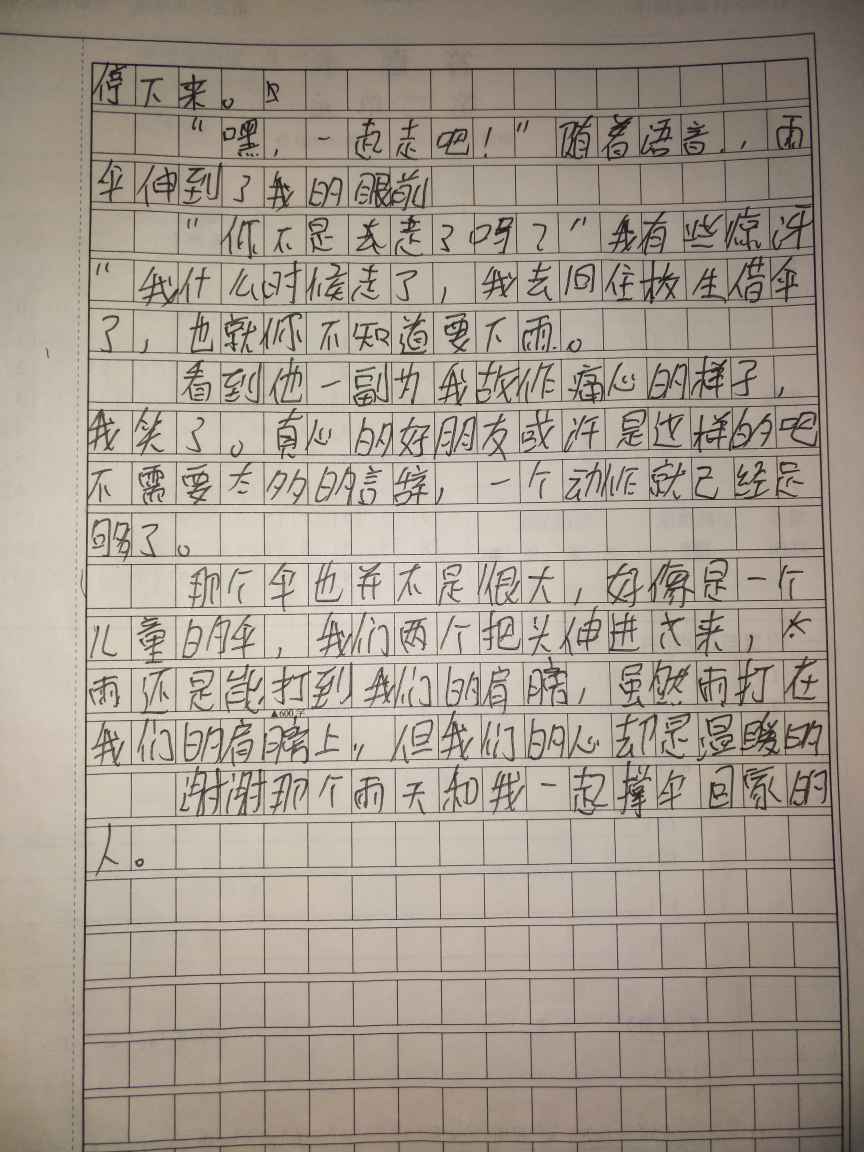 停下来。
“嘿，一起走吧！”随着语音，雨
伞伸到了我的眼前
“你不是走了吗？”我有些惊讶
“我什么时候走了，我去回住校生借伞
了，也就你不知道要下雨。
看到他一副为我故作痛心的样子，
我笑了。真心的好朋友或许是这样的吧
不需要太多的言辞，一个动作就已经足
够了。
那个伞也并不是很大，好像是一个
儿童的伞，我们两个把头伸进去来，
雨还是能打到我们的肩膀，虽然雨打在
▲600字
我们的肩膀上，但我们的心却是温暖的
谢谢那个雨天和我一起撑伞回家的
人。